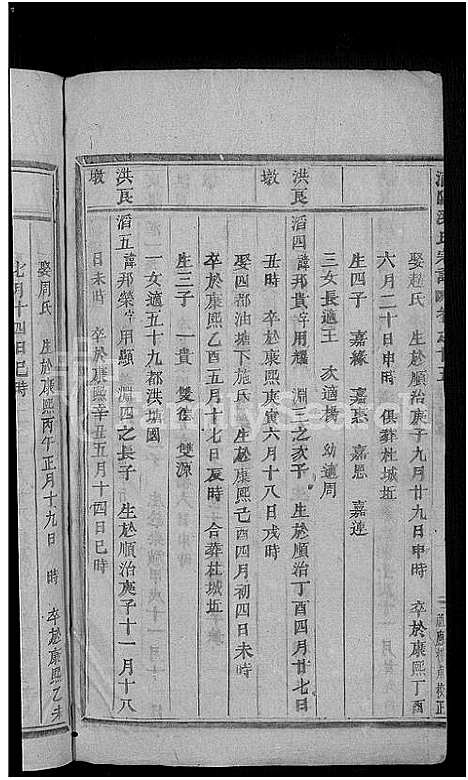 娶趙氏 生於順治庚子九月廿九日申時 卒於康熙丁酉
六月二十日申時 俱葬杜城坵
生四子 嘉緣 嘉惠 嘉恩 嘉連
三女長適王 次適楊 幼適周
洪良 滔四諱邦貴字用耀 淵三之次子 生於順治丁酉四月廿七日
墩 丑時 卒於康熙庚寅六月十八日戌時
娶四都油塘下施氏 生於康熙己酉四月初四日未時
卒於康熙乙酉五月十七日辰時 合葬杜城坵
生三子 一貴 雙進 雙源
一女適五十九都洪塘國
洪良 滔五諱邦榮字用顯 淵四之長子 生於順治庚子十一月十八
墩 日未時 卒於康熙辛丑五月十四日巳時
娶周氏 生於康熙丙午正月十九日 時 卒於康熙乙未
七月十四日巳時
FamilySearch